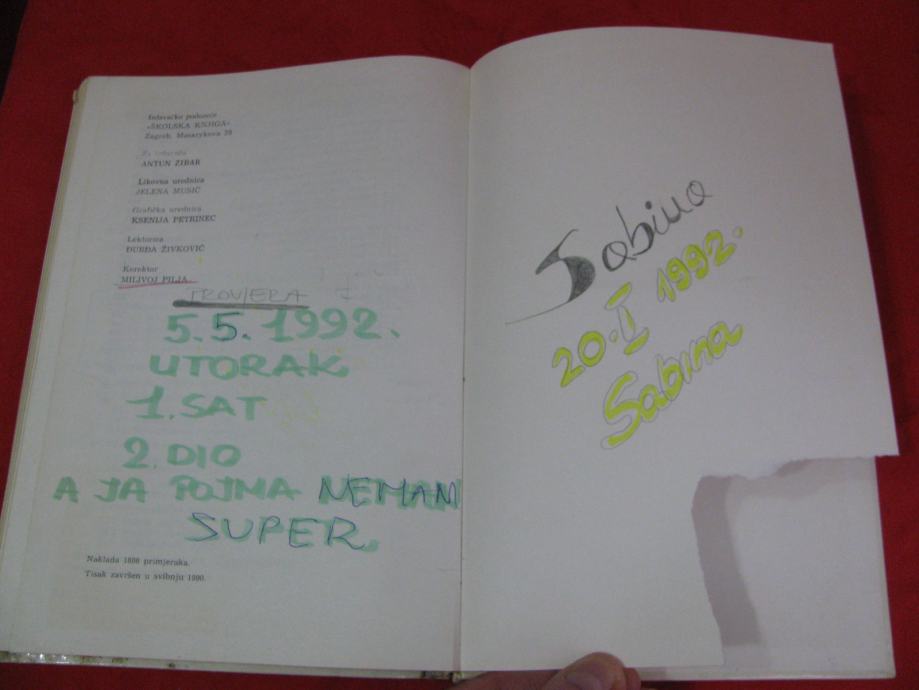 Izdavačko poduzeće
»ŠKOLSKA KNJIGA«
Zagreb, Masarykova 28
Za izdavača
ANTUN ZIBAR
Likovna urednica
JELENA MUSIĆ
Grafička urednica
KSENIJA PETRINEC
Lektorica
ĐURĐA ŽIVKOVIĆ
Korektor
MILIVOJ PILJA
PROVJERA
5.5.1992.
UTORAK
1. SAT
2. DIO
A JA POJMA NEMAM
SUPER
Naklada 1800 primjeraka.
Tisak završen u svibnju 1990.
Sabina
20.I 1992.
Sabina